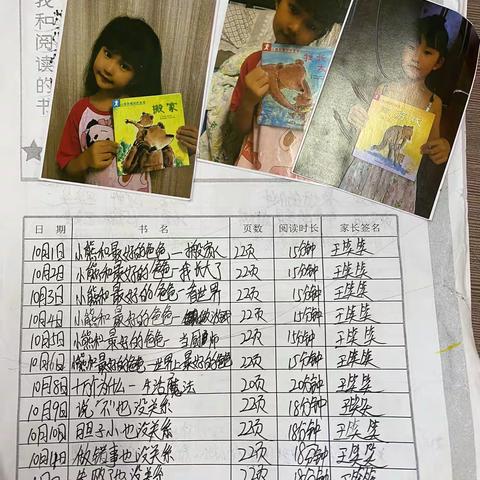 我和阅读的书
搬家
我长大了
日 期 书 名 页数 阅读时长 家长签名
10月1日 小熊和最好的爸爸—搬家 22页 15分钟 王奕奕
10月2日 小熊和最好的爸爸—我长大了 22页 15分钟 王奕奕
10月3日 小熊和最好的爸爸—看世界 22页 15分钟 王奕奕
10月4日 小熊和最好的爸爸— 22页 15分钟 王奕奕
10月5日 小熊和最好的爸爸—当厨师 22页 15分钟 王奕奕
10月6日 小熊和最好的爸爸—世界上最好的爸爸 22页 15分钟 王奕奕
10月8日 十万个为什么—生活魔法 20页 20分钟 王奕奕
10月9日 说“不”也没关系 22页 18分钟 王奕奕
10月10日 胆子小也没关系 22页 18分钟 王奕奕
做错事也没关系 22页 18分钟 王奕奕
失败了也没关系 22页 18分钟 王奕奕